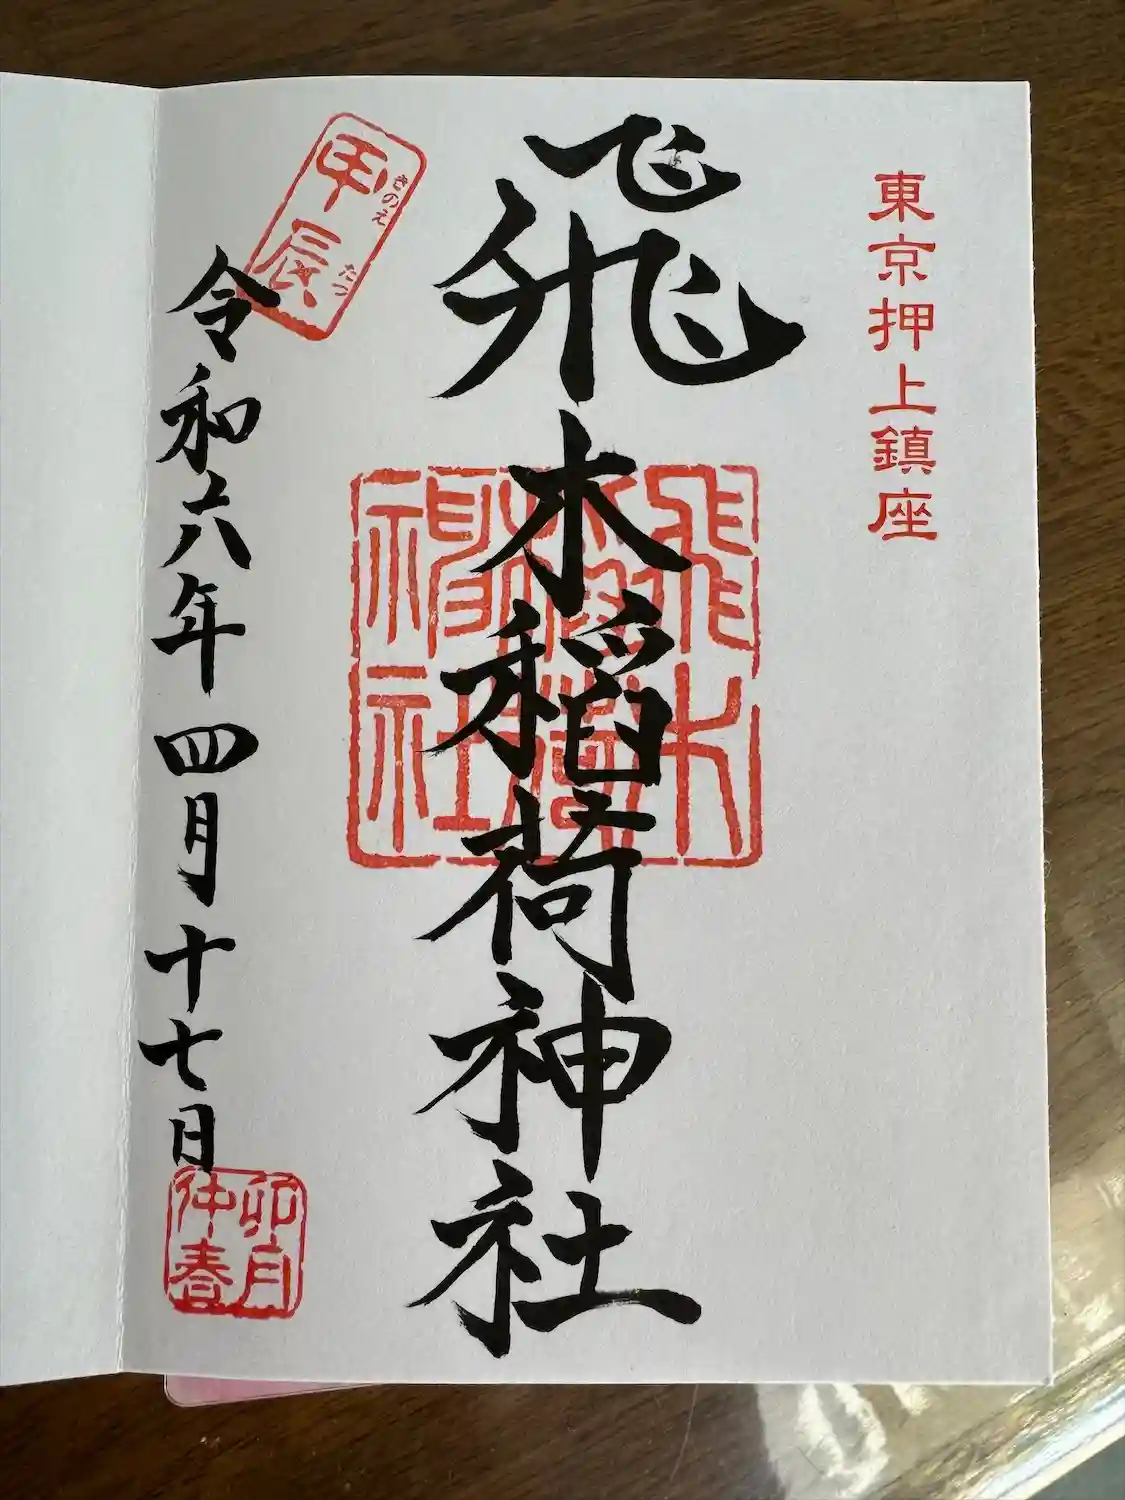 東京押上鎮座
飛木稲荷神社
飛木
稲荷
神社
甲辰
きのえ たつ
令和六年四月十七日
卯月
仲春